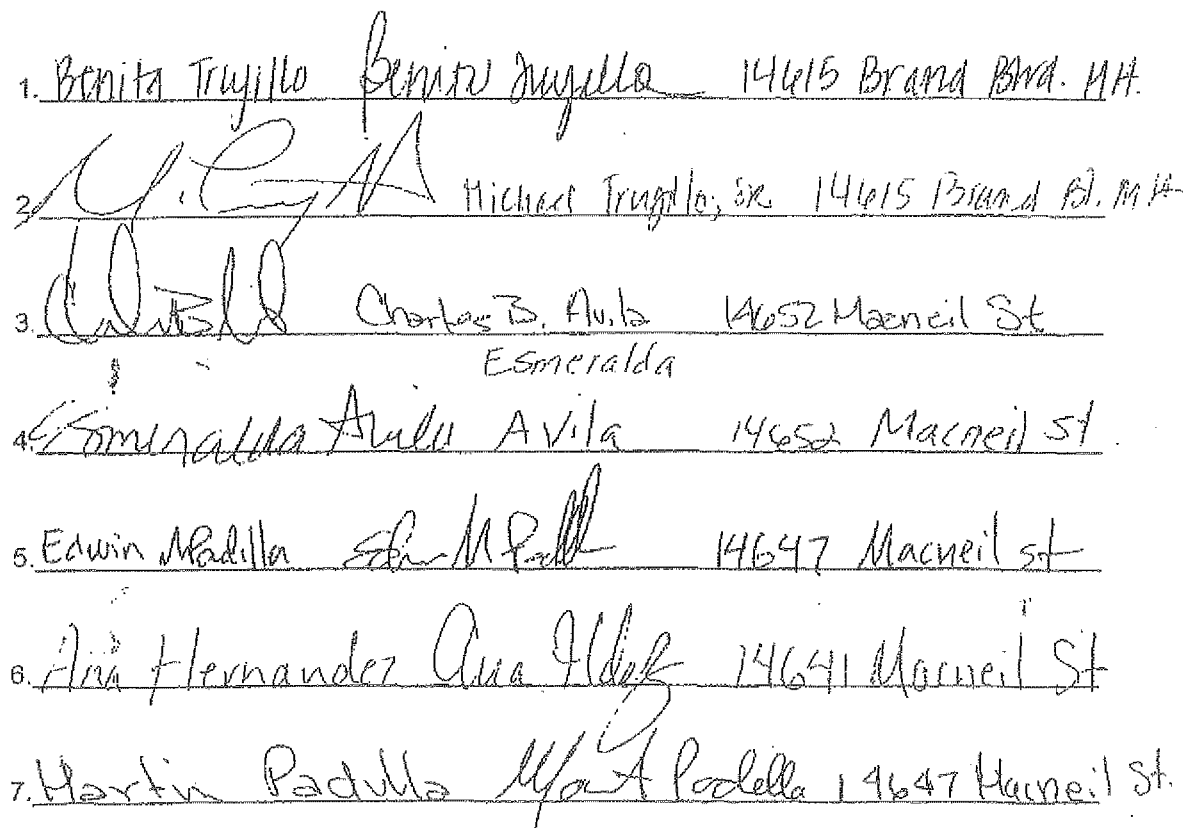 1. Benita Trujillo Benita Trujillo 14615 Brand Blvd. M.H.
2. Michael Trujillo, Sr. 14615 Brand Bl. M H
3. Charles B. Avila 14652 Macneil St
Esmeralda
4. Esmeralda Avila Avila 14652 Macneil St
5. Edwin M Padilla Edwin M Padilla 14647 Macneil st
6. Ana Hernandez Ana 14641 Macneil St
7. Martin Padilla Padilla 14647 Macneil St.